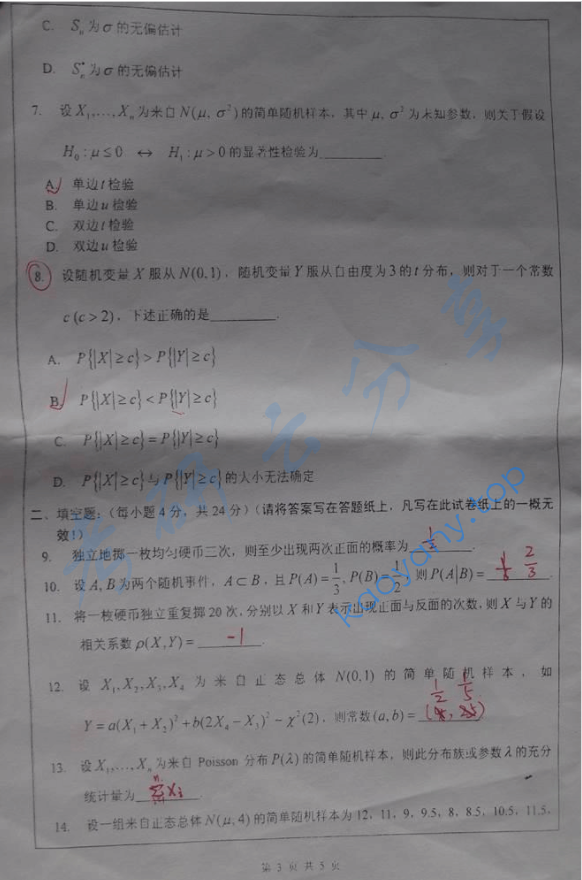 C. Sₙ 为 σ 的无偏估计
D. Sₙ* 为 σ 的无偏估计
7. 设 X₁,…,Xₙ 为来自 N(μ, σ²) 的简单随机样本，其中 μ, σ² 为未知参数，则关于假设
H₀ : μ ≤ 0 ↔ H₁ : μ > 0 的显著性检验为________
A. 单边 t 检验
B. 单边 u 检验
C. 双边 t 检验
D. 双边 u 检验
8. 设随机变量 X 服从 N(0,1)，随机变量 Y 服从自由度为 3 的 t 分布，则对于一个常数
c (c > 2)，下述正确的是________.
A. P{|X| ≥ c} > P{|Y| ≥ c}
B. P{|X| ≥ c} < P{|Y| ≥ c}
C. P{|X| ≥ c} = P{|Y| ≥ c}
D. P{|X| ≥ c} 与 P{|Y| ≥ c} 的大小无法确定
二、填空题：（每小题 4 分，共 24 分）（请将答案写在答题纸上，凡写在此试卷纸上的一概无
效！）
9. 独立地掷一枚均匀硬币三次，则至少出现两次正面的概率为 1/2 .
10. 设 A, B 为两个随机事件，A ⊂ B，且 P(A) = 1/3, P(B) = 1/2，则 P(A|B) = 2/3 .
11. 将一枚硬币独立重复掷 20 次，分别以 X 和 Y 表示出现正面与反面的次数，则 X 与 Y 的
相关系数 ρ(X,Y) = -1 .
12. 设 X₁, X₂, X₃, X₄ 为来自正态总体 N(0,1) 的简单随机样本，如
1/2 1/5
Y = a(X₁ + X₂)² + b(2X₄ − X₃)² ~ χ²(2)，则常数 (a, b) =
13. 设 X₁,…,Xₙ 为来自 Poisson 分布 P(λ) 的简单随机样本，则此分布族或参数 λ 的充分
统计量为 ΣXᵢ
14. 设一组来自正态总体 N(μ, 4) 的简单随机样本为 12, 11, 9, 9.5, 8, 8.5, 10.5, 11.5,
第 3 页 共 5 页
考研云分享
kaoyany.top